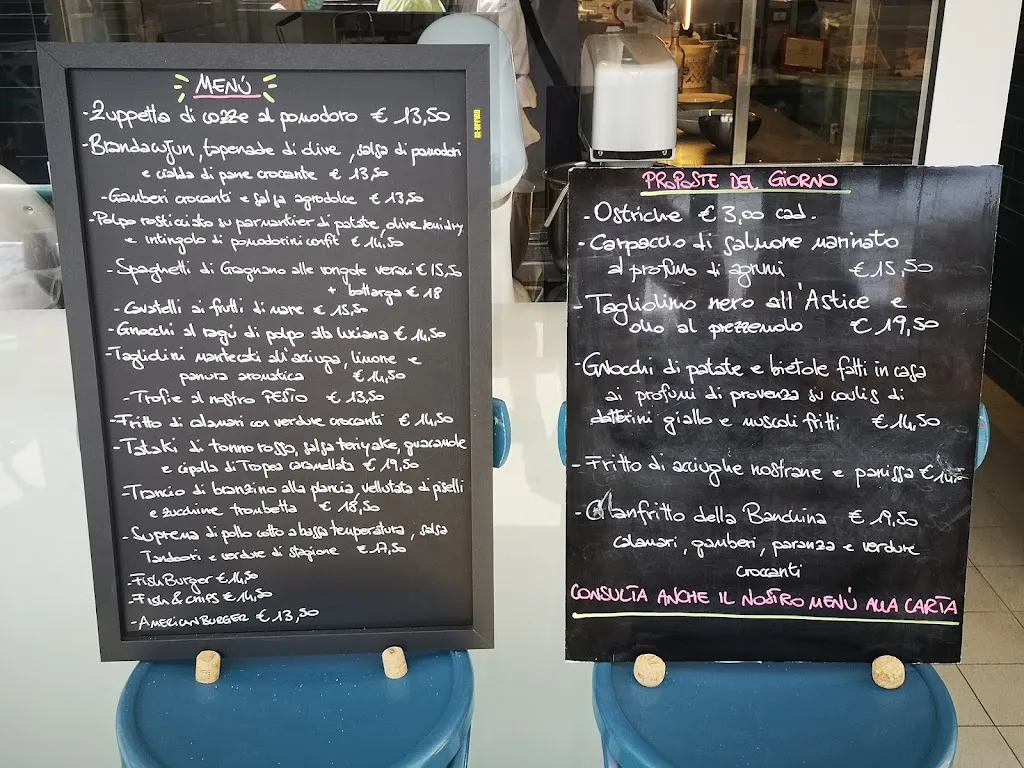 MENÚ
-Zuppetta di cozze al pomodoro € 13,50
-Brandacujun, tapenade di olive, salsa di pomodori
e cialda di pane croccante € 13,50
-Gamberi croccanti e salsa agrodolce € 13,50
-Polpo rosticciato su parmantier di patate, olive semidry
e intingolo di pomodorini confit € 14,50
-Spaghetti di Gragnano alle vongole veraci € 15,50
+ bottarga € 18
-Cavatelli ai frutti di mare € 15,50
-Gnocchi al ragú di polpo alla luciana € 14,50
-Tagliolini mantecati all'acciuga, limone e
panura aromatica € 14,50
-Trofie al nostro PESTO € 13,50
-Fritto di calamari con verdure croccanti € 14,50
-Tataki di tonno rosso, salsa teriyake, guacamole
e cipolla di Tropea caramellata € 19,50
-Trancio di branzino alla plancia, vellutata di piselli
e zucchine trombetta € 18,50
-Suprema di pollo cotto a bassa temperatura, salsa
Tandoori e verdure di stagione € 17,50
-Fish Burger € 14,50
-Fish & chips € 14,50
-AMERICAN BURGER € 13,50
PROPOSTE DEL GIORNO
-Ostriche € 3,00 cad.
-Carpaccio di salmone marinato
al profumo di agrumi € 15,50
-Tagliolino nero all'Astice e
olio al prezzemolo € 19,50
-Gnocchi di patate e bietole fatti in casa
ai profumi di provenza su coulis di
datterini giallo e muscoli fritti € 14,50
-Fritto di acciughe nostrane e panissa € 14,50
-Granfritto della Banchina € 19,50
calamari, gamberi, paranza e verdure
croccanti
CONSULTA ANCHE IL NOSTRO MENÚ ALLA CARTA